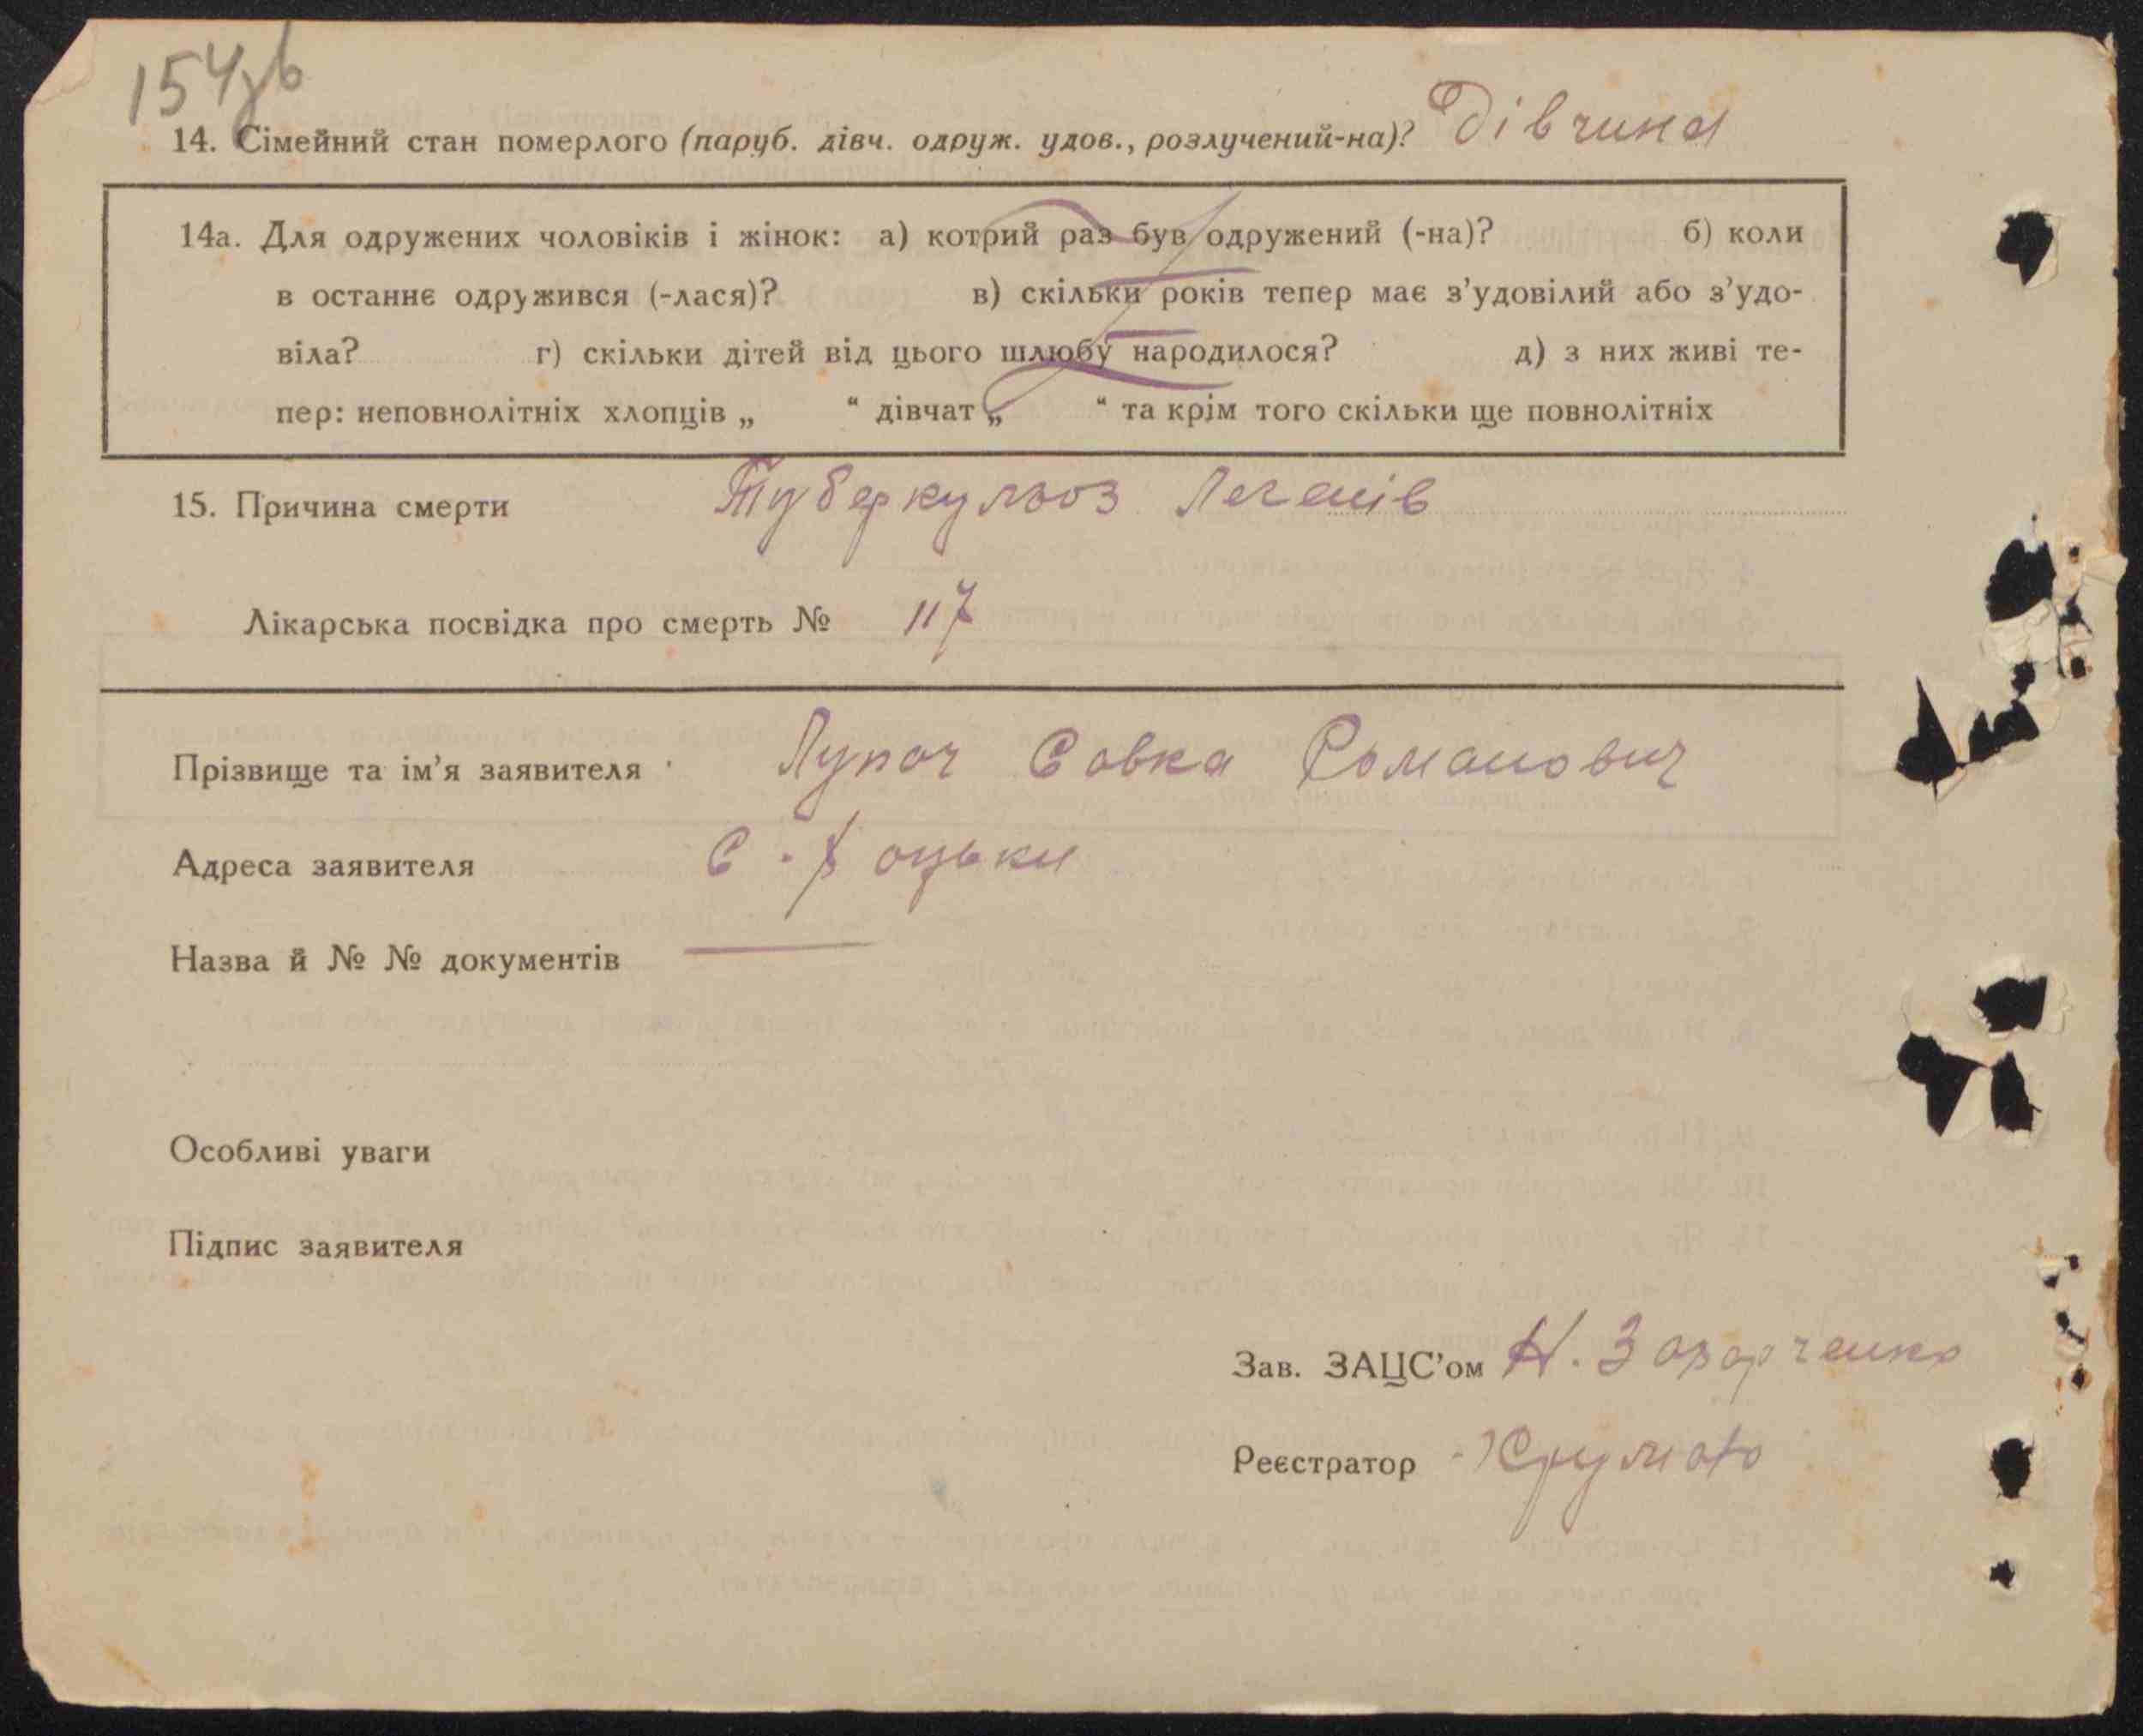 154зв
14. Сімейний стан померлого (паруб. дівч. одруж. удов., розлучений-на)? Дівчина
14а. Для одружених чоловіків і жінок: а) котрий раз був одружений (-на)? б) коли
в останнє одружився (-лася)? в) скільки років тепер має з’удовілий або з’удо-
віла? г) скільки дітей від цього шлюбу народилося? д) з них живі те-
пер: неповнолітніх хлопців „ “ дівчат „ “ та крім того скільки ще повнолітніх
15. Причина смерти Туберкульоз Легенів
Лікарська посвідка про смерть № 117
Прізвище та ім’я заявителя Лупач Савка Романович
Адреса заявителя С. Хоцьки
Назва й № № документів —
Особливі уваги
Підпис заявителя
Зав. ЗАЦС’ом Н. Захарченко
Реєстратор